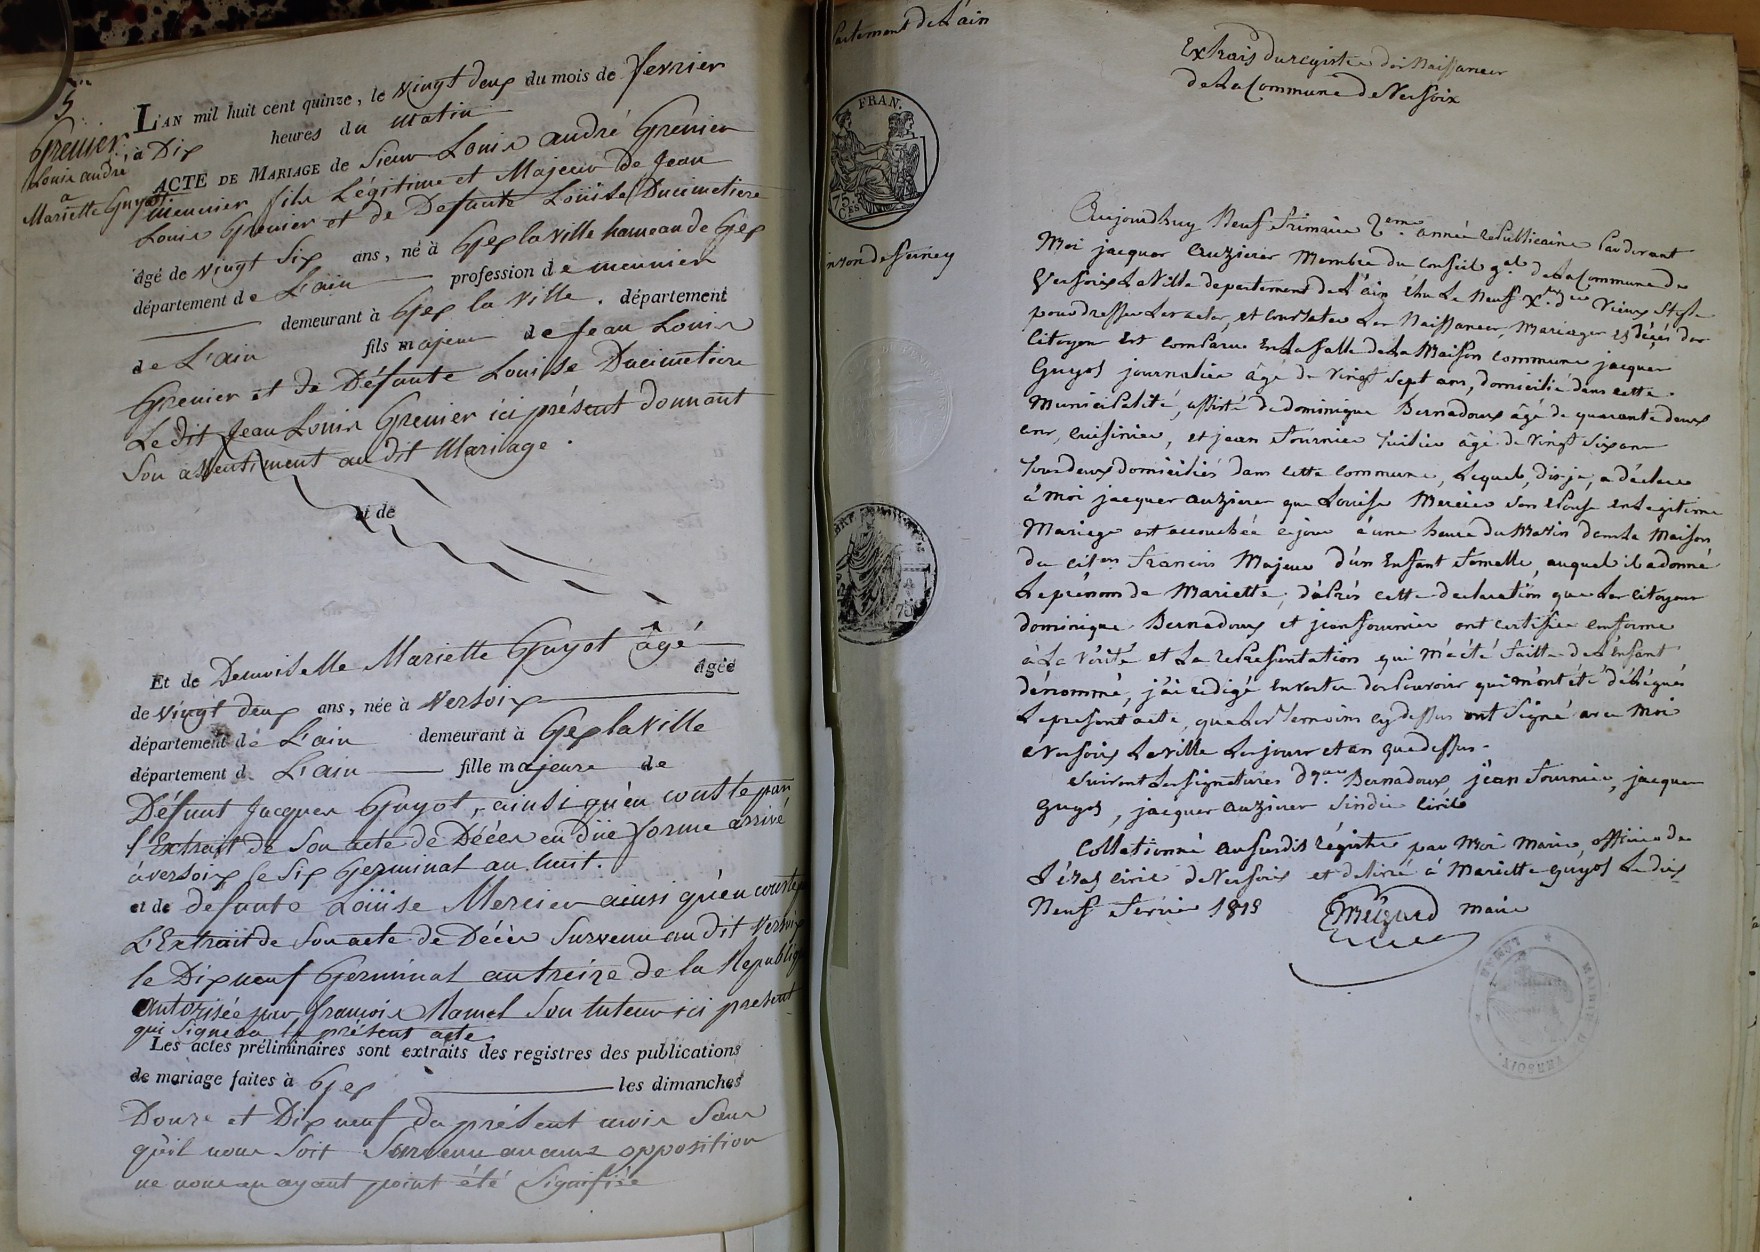 5
Grenier
Louis andré
a
Mariette Guyot
L'AN mil huit cent quinze, le vingt deux du mois de fevrier
à Dix heures du matin
ACTE DE MARIAGE de Sieur Louis andré Grenier
meunier fils Légitime et Majeur de Jean
Louis Grenier et de Defunte Louïse Ducimetiere
âgé de vingt Six ans, né à Gex la ville hameau de Gex
département de L'ain profession de meunier
demeurant à Gex la Ville. département
de L'ain fils majeur de Jean Louis
Grenier et de Défunte Louise Ducimetiere
Le dit Jean Louis Grenier ici présent donnant
Son assentiment au dit Mariage.
et de
Et de Demoiselle Mariette Guyot âgé
âgée
de vingt deux ans, née à Versoix
département de L'ain demeurant à Gex la Ville
département d. L'ain fille majeure de
Défunt Jacques Guyot, ainsi qu'en conste par
l'Extrait de Son acte de Décès en düe forme arrivé
à versoix le Six Germinal an huit.
et de defunte Louïse Mercier ainsi qu'en conste
L'Extrait de Son acte de Décès Survenu au dit Versoix
le Dix neuf Germinal an treize de la Républiq
Autorisée par françois Mamel Son tuteur ici present
qui Signera le présent acte
Les actes préliminaires sont extraits des registres des publications
de mariage faites à Gex les dimanches
Douze et Dix neuf du présent mois Sans
qu'il nous Soit Survenu aucune opposition
ne nous en ayant point été Signifiée
partement de L'ain
FRAN.
75.
CES
nton de ferney
75
Extrais du registre des Naissances
de la Commune de Versoix
Aujourdhuy Neuf frimaire 2eme année republicaine pardevant
Moi jacques auzieres Membre du Conseil gal de la Commune de
Versoix La Ville departement de L'ain Elu Le Neuf Xbre Vieux Style
pour dresser Les actes, et Constater Les Naissances, Mariages et décès des
Citoyens Est comparu En La Salle de La Maison commune jacques
Guyot journalier âgé de vingt Sept ans, domicilié dans cette
Municipalité, assisté de dominique Bernadoux âgé de quarante deux
ans, cuisinier, et jean fournier âgé de Vingt Six ans
tous deux domiciliés dans cette Commune, Lequel, dis-je, a déclaré
à Moi jacques auzieres que Louise Mercier Son Epouse en Legitime
Mariage est accouchée ce jour à une heure du Matin dans La Maison
du citen francois Majeur d'un Enfant femelle, auquel il a donné
Le prénom de Mariette; d'après cette declaration que Les Citoyens
dominique Bernadoux et jean fournier ont certifiée conforme
à La Vérité et La representation qui m'a été faitte de L'Enfant
dénommé, j'ai redigé En vertu des Pouvoirs qui m'ont été délégués
Le present acte, que Les temoins cy dessus ont Signé avec Moi
a Versoix La Ville Les jour et an que dessus.
Suivent Les Signatures Dque Bernadoux, jean fournier, jacques
Guyot, jacques auzieres Sindic
Collationné au susdit régistre par Moi Maire, officier de
L'état civil de Versoix et délivré à Mariette Guyot Le dix
Neuf fevrier 1815 Maire